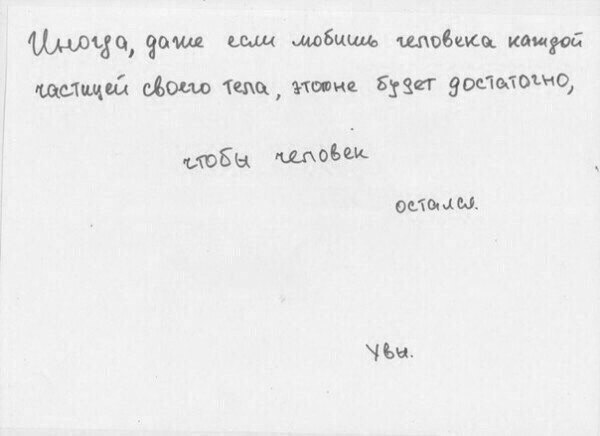 Иногда, даже если любишь человека каждой
частицей своего тела, этого не будет достаточно,
чтобы человек
остался.
Увы.